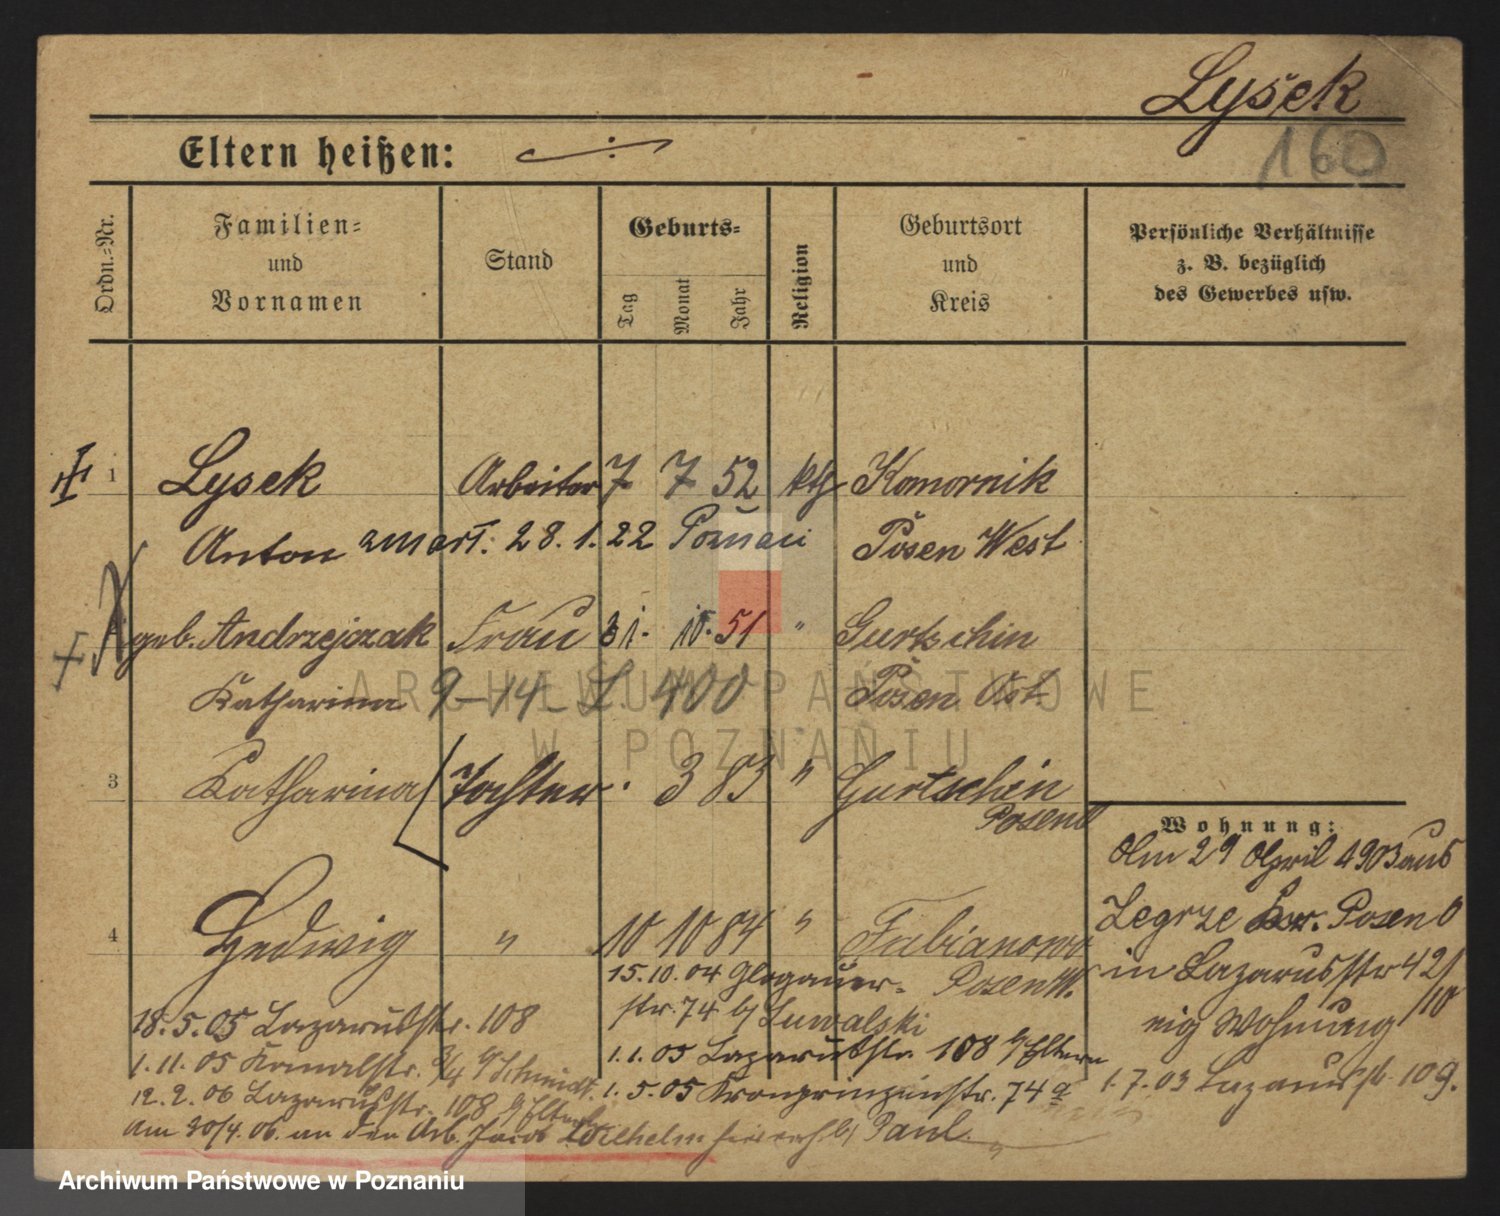 Lysek
160
Eltern heißen:
Ordn.-Nr.
Familien- und Vornamen
Stand
Geburts-
Tag Monat Jahr
Religion
Geburtsort und Kreis
Persönliche Verhältnisse z. B. bezüglich des Gewerbes usw.
1 Lysek Arbeiter 7 7 52 kth Komornik
Anton zmarł. 28.1.22 Poznań Posen West
geb. Andrzejczak Frau 31. 10. 51 " Gurtschin
Katharina 9-14- L. 400 Posen Ost
3 Katharina Tochter 3 83 " Gurtschin
Posen O
Wohnung:
Am 29 April 1903 aus
4 Hedwig " 10 10 84 " Fabianowo
Posen W.
Zegrze Kr. Posen O
in Lazarusstr 42
eig Wohnung
1.7.03 Lazarusstr. 109.
15.10.04 Glogauer-
str. 74 b/ Suwalski
1.1.05 Lazarusstr. 108 b/Eltern
1.5.05 Kronprinzenstr. 74a
18.5.05 Lazarusstr. 108
1.11.05 Kanalstr. 3/4 b/Schmidt.
12.2.06 Lazarusstr. 108 b/Eltern
am 30/4.06. an den Arb. Jacob Wilhelm b/ Paul
ARCHIWUM PAŃSTWOWE
W POZNANIU
Archiwum Państwowe w Poznaniu